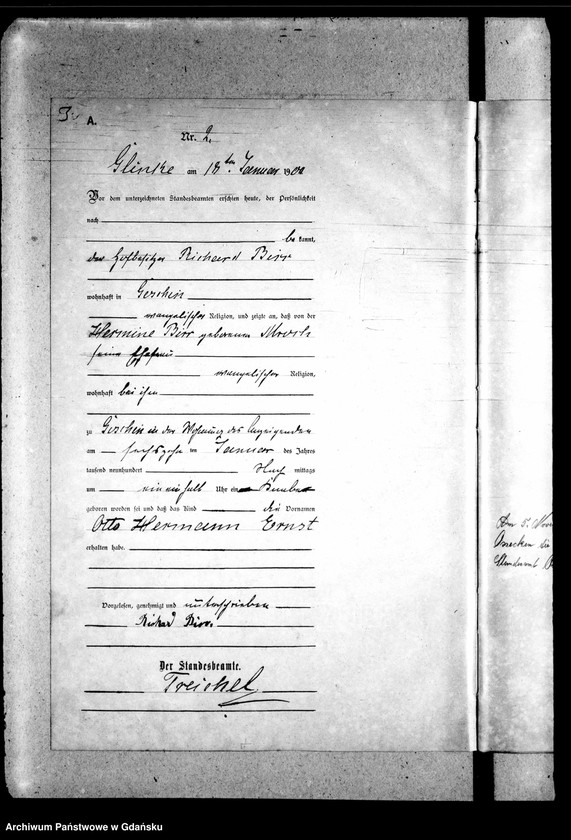 A.
Nr. 2.
Glinke am 18ten Januar 1900
Vor dem unterzeichneten Standesbeamten erschien heute, der Persönlichkeit
nach
be kannt,
der Hofbesitzer Richard Birr
wohnhaft in Goschin
evangelischer Religion, und zeigte an, daß von der
Hermine Birr geborenen
seine Ehefrau
evangelischer Religion,
wohnhaft bei ihm
zu Goschin in der Wohnung des Anzeigenden
am sechszehn ten Januar des Jahres
tausend neunhundert Nach mittags
um ein ein halb Uhr ein Knabe
geboren worden sei und daß das Kind die Vornamen
Otto Hermann Ernst
erhalten habe.
Vorgelesen, genehmigt und unterschrieben
Richard Birr.
Der Standesbeamte.
Treichel
Archiwum Państwowe w Gdańsku